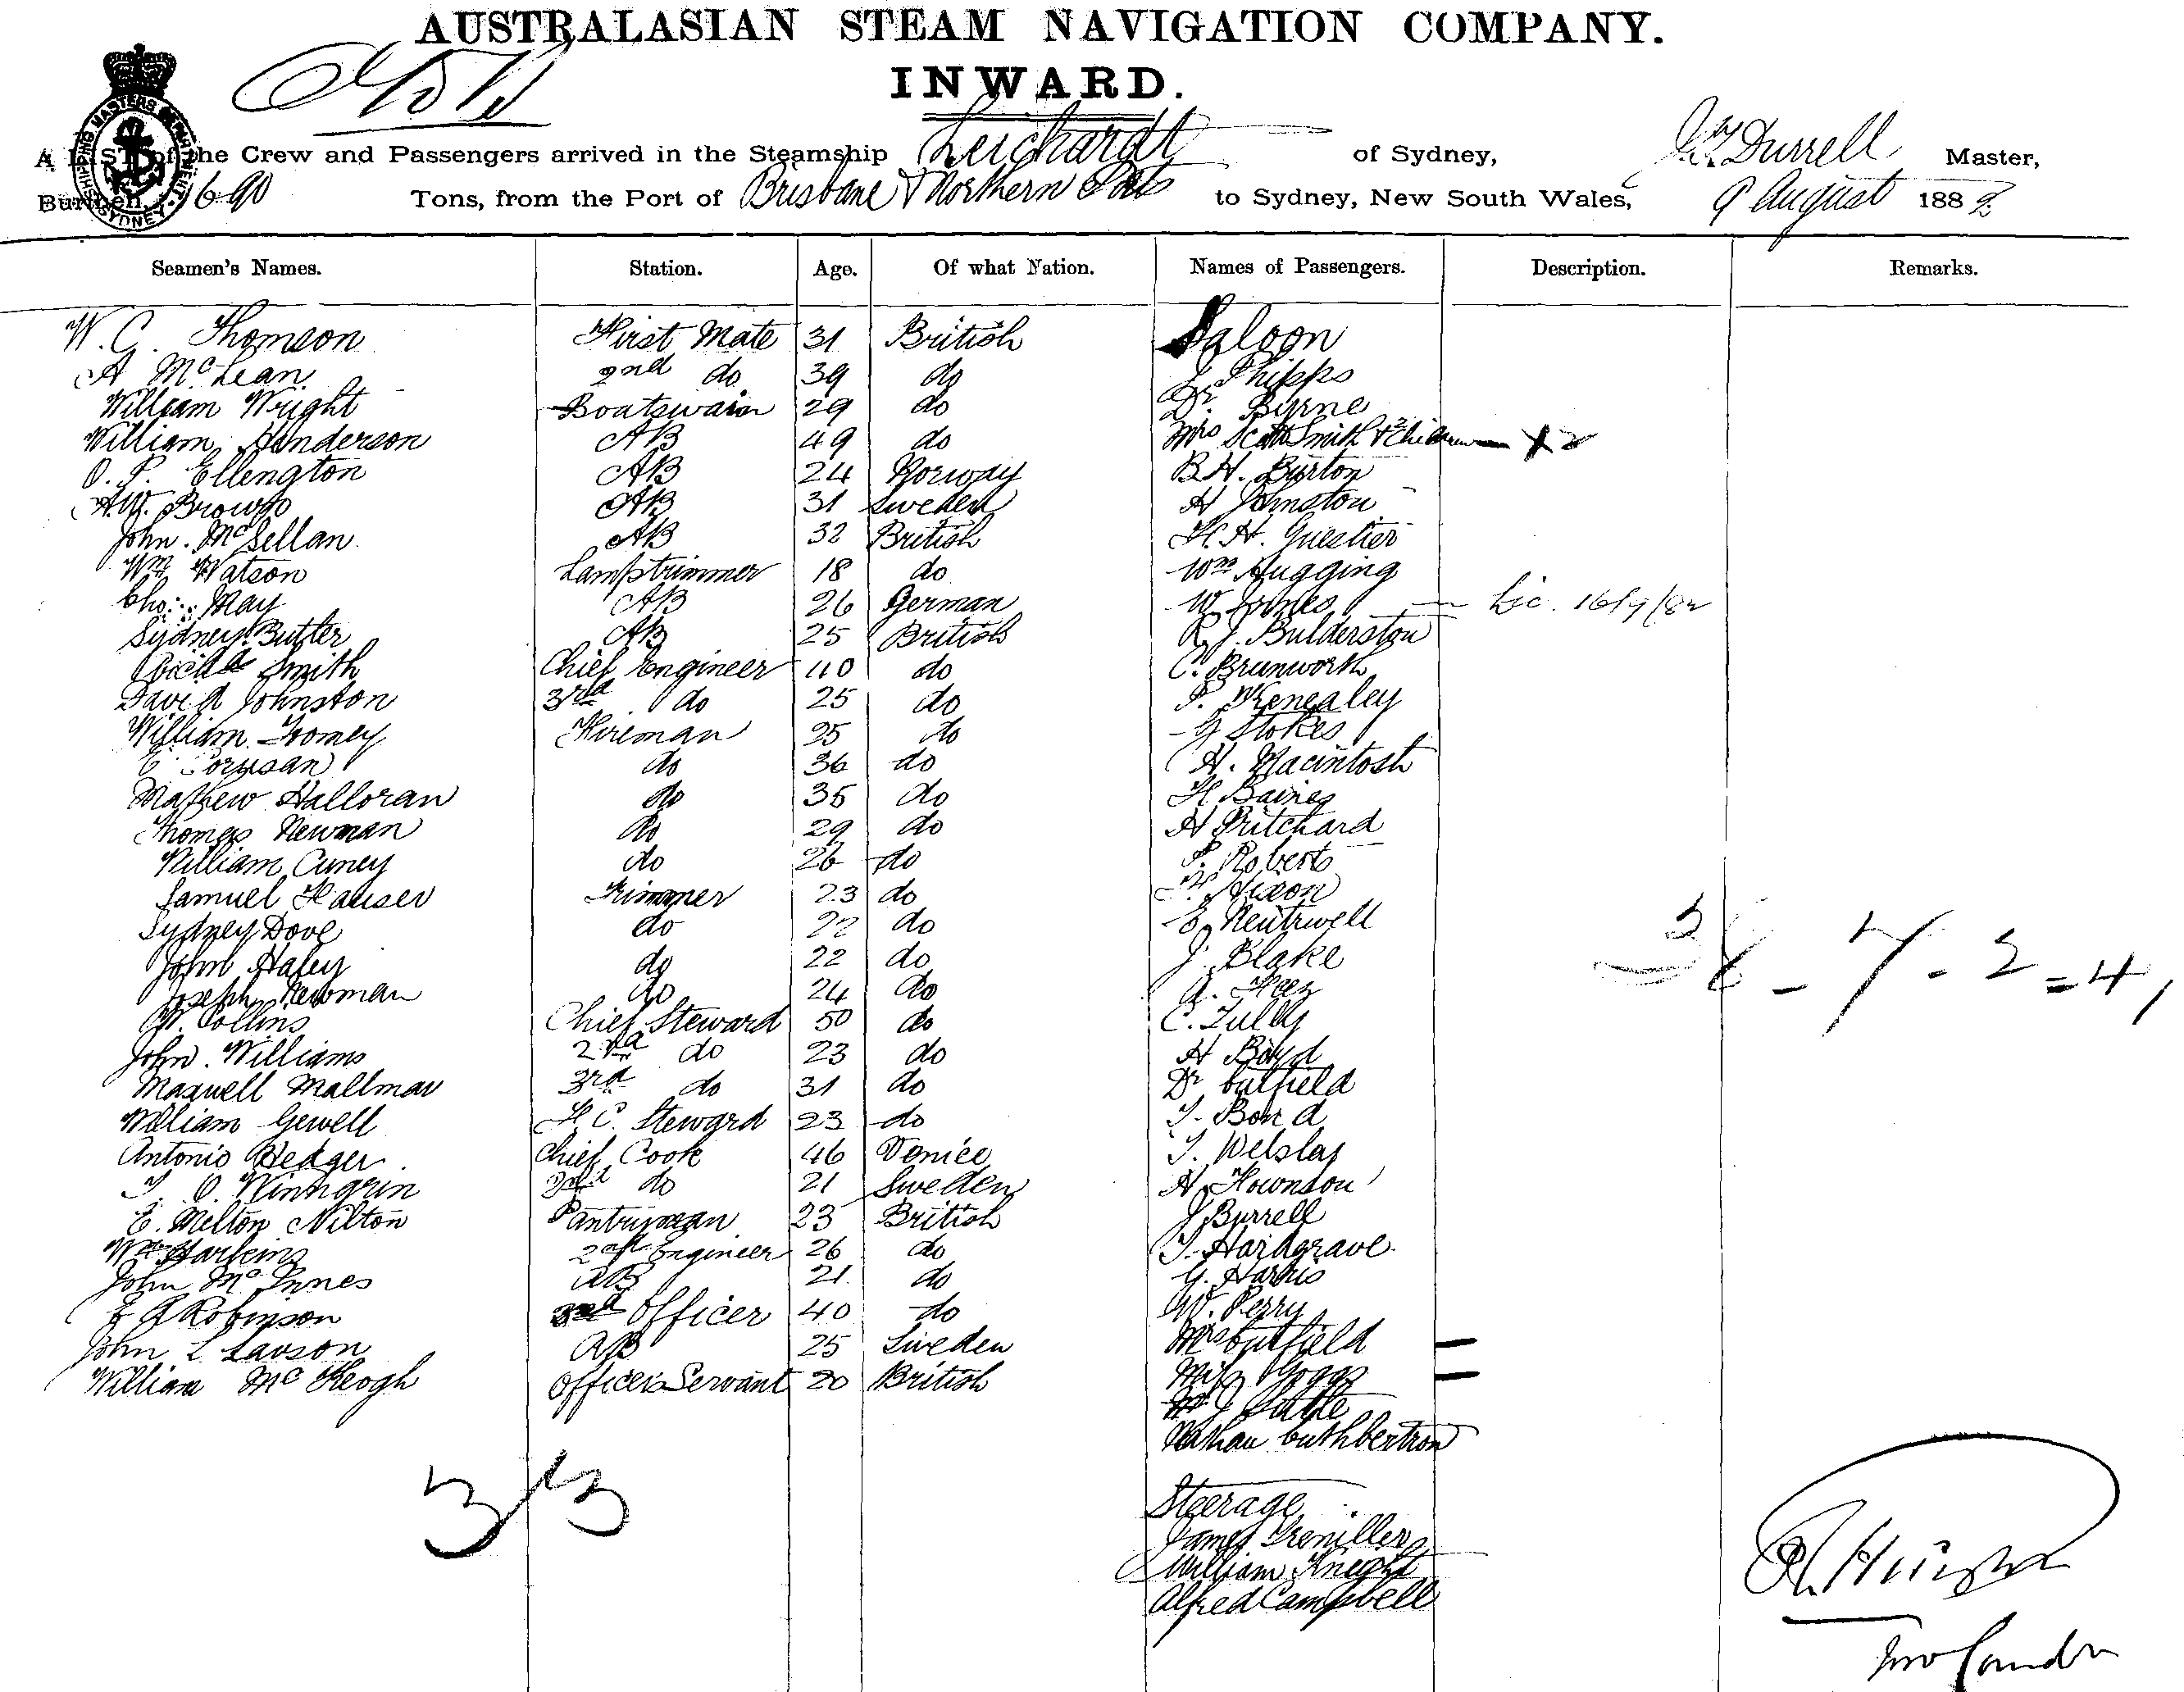 AUSTRALASIAN STEAM NAVIGATION COMPANY.
INWARD.
SHIPPING MASTERS DEPARTMENT SYDNEY
A LIST of the Crew and Passengers arrived in the Steamship Leichardt of Sydney, Durrell Master,
Burthen, 690 Tons, from the Port of Brisbane & Northern Ports to Sydney, New South Wales, 9 August 1882
Seamen's Names. Station. Age. Of what Nation. Names of Passengers. Description. Remarks.
W. C. Thomson First Mate 31 British Saloon
A McLean 2nd do 39 do J Phipps
William Wright Boatswain 29 do Dr. Byrne
William Henderson AB 49 do Mrs Scott Smith & 2 Children
O. P. Ellington AB 24 Norway B. H. Burton
A.W. Brown AB 31 Sweden H Johnston
John. McLellan. AB 32 British H. H. Guestier
Wm Watson Lamptrimmer 18 do Wm Hugging
Chs. May AB 26 German W Jones
Sydney Butler AB 25 British R. J. Bulderston
Smith Chief Engineer 40 do C. Brunworth
David Johnston 3rd do 25 do P. Kenealey
William Fireman 25 do G Stokes
E Corysan do 36 do H. Macintosh
Mathew Halloran do 35 do H Baines
Thomas Newman do 29 do H Pritchard
William Curney do 26 do P. Roberts
Samuel Hauser Trimmer 23 do Nixon
Sydney Dove do 22 do E. Neutrwell
John Hafey do 22 do J. Blake
Joseph Newman do 24 do A.
W. Collins Chief Steward 50 do C. Tully
John. Williams 2nd do 23 do H Boyd
Maxwell Mallmar 3rd do 31 do Dr Cutfield
William Gewell F. C. Steward 23 do T. Bond
Antonio Hedger Chief Cook 46 Venice T. Welslay
T. O. Winngrin 2nd do 21 Sweden H. Hownson
E. Melton Nilton Pantryman 23 British J Burrell
Wm Harkins 2nd Engineer 26 do T. Hardgrave.
John McInnes AB 21 do G. Harris
Robinson 2nd Officer 40 do W. Perry
John L Lawson AB 25 Sweden Mrs Cutfield
William McKeogh Officers Servant 20 British Miss Goggs
Nathan Cuthbertson
33
Steerage
James Tremiller
William Knight
Alfred Campbell